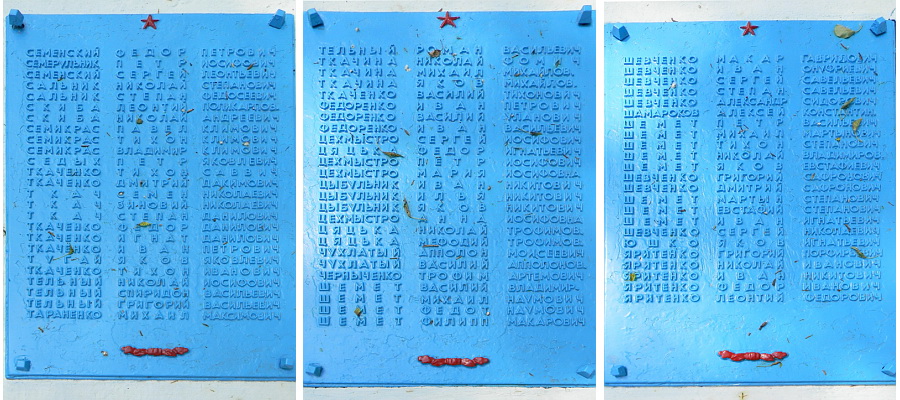 СЕМЕНСКИЙ ФЕДОР ПЕТРОВИЧ
СЕМЕРУЛЬНИК ПЕТР ИОСИФОВИЧ
СЕМЕНСКИЙ СЕРГЕЙ ЛЕОНТЬЕВИЧ
САЛЬНИК НИКОЛАЙ СТЕПАНОВИЧ
САЛЬНИК СТЕПАН ФЕДОСЕЕВИЧ
СКИБА ЛЕОНТИЙ ПОЛИКАРПОВ.
СКИБА НИКОЛАЙ АНДРЕЕВИЧ
СЕМИКРАС ПАВЕЛ КЛИМОВИЧ
СЕМИКРАС ТИХОН КЛИМОВИЧ
СЕМИКРАС ВЛАДИМИР КЛИМОВИЧ
СЕДЫХ ПЕТР ЯКОВЛЕВИЧ
ТКАЧЕНКО ТИХОН САВВИЧ
ТКАЧЕНКО ДМИТРИЙ
ТКАЧ СЕМЕН НИКОЛАЕВИЧ
ТКАЧ ЗИНОВИЙ НИКОЛАЕВИЧ
ТКАЧ СТЕПАН ДАНИЛОВИЧ
ТКАЧЕНКО ФЕДОР ДАНИЛОВИЧ
ТКАЧЕНКО ИГНАТ ДАНИЛОВИЧ
ТКАЧЕНКО ИВАН ПЕТРОВИЧ
ЯКОВ ЯКОВЛЕВИЧ
ТКАЧЕНКО ТИХОН ИВАНОВИЧ
ТЕЛЬНЫЙ НИКОЛАЙ ИОСИФОВИЧ
ТЕЛЬНЫЙ СПИРИДОН ВАСИЛЬЕВИЧ
ТЕЛЬНЫЙ ГРИГОРИЙ ВАСИЛЬЕВИЧ
ТАРАНЕНКО МИХАИЛ МАКСИМОВИЧ
ТЕЛЬНЫЙ РОМАН ВАСИЛЬЕВИЧ
ТКАЧИНА НИКОЛАЙ ФОМИЧ
ТКАЧИНА МИХАИЛ МИХАЙЛОВ.
ТКАЧИНА ЯКОВ МИХАЙЛОВ.
ТКАЧЕНКО ВАСИЛИЙ ТИХОНОВИЧ
ФЕДОРЕНКО ИВАН ПЕТРОВИЧ
ФЕДОРЕНКО ВАСИЛИЙ
ФЕДОРЕНКО ИВАН ВАСИЛЬЕВИЧ
ЦЕХМЫСТРО СЕРГЕЙ ИОСИФОВИЧ
ЦЯЦЬКА ФЕДОР ИГНАТЬЕВИЧ
ЦЕХМЫСТРО ПЕТР ИОСИФОВИЧ
ЦЕХМЫСТРО МАРИЯ ИОСИФОВНА
ЦЫБУЛЬНИК ИВАН НИКИТОВИЧ
ЦЫБУЛЬНИК ИЛЬЯ НИКИТОВИЧ
ЦЫБУЛЬНИК ЯКОВ НИКИТОВИЧ
ЦЕХМЫСТРО АННА ИОСИФОВНА
ЦЯЦЬКА НИКОЛАЙ ТРОФИМОВ.
ЦЯЦЬКА МЕФОДИЙ ТРОФИМОВ.
ЧУХЛАТЫЙ АППОЛОН МОИСЕЕВИЧ
ЧУХЛАТЫЙ ВАСИЛИЙ АППОЛОНОВ.
ЧЕРНЫЧЕНКО ТРОФИМ АРТЕМОВИЧ
ШЕМЕТ ВАСИЛИЙ ВЛАДИМИР.
ШЕМЕТ МИХАИЛ НАУМОВИЧ
ШЕМЕТ ФЕДОР НАУМОВИЧ
ШЕМЕТ ФИЛИПП МАКАРОВИЧ
ШЕВЧЕНКО МАКАР ГАВРИЛОВИЧ
ШЕВЧЕНКО ИВАН ОНУФРИЕВИЧ
ШЕВЧЕНКО СЕРГЕЙ САВЕЛЬЕВИЧ
ШЕВЧЕНКО СТЕПАН САВЕЛЬЕВИЧ
ШЕВЧЕНКО АЛЕКСАНДР СИДОРОВИЧ
ШАМАРОКОВ АЛЕКСЕЙ
ШЕМЕТ ПЕТР
ШЕМЕТ МИХАИЛ МАРТЫНОВИЧ
ШЕМЕТ ТИХОН СТЕПАНОВИЧ
ШЕМЕТ НИКОЛАЙ ВЛАДИМИРОВ.
ШЕМЕТ ЯКОВ
ШЕВЧЕНКО ГРИГОРИЙ
ШЕВЧЕНКО ДМИТРИЙ
ШЕМЕТ МАРТЫН СТЕПАНОВИЧ
ШЕМЕТ ЕВСТАФИЙ СТЕПАНОВИЧ
ШЕМЕТ ИВАН ИГНАТЬЕВИЧ
ШЕВЧЕНКО СЕРГЕЙ НИКОЛАЕВИЧ
ЮШКО ЯКОВ ИГНАТЬЕВИЧ
ЯРИТЕНКО ГРИГОРИЙ
ЯРИТЕНКО НИКОЛАЙ ИВАНОВИЧ
ЯРИТЕНКО ИВАН
ЯРИТЕНКО ФЕДОР ИВАНОВИЧ
ЯРИТЕНКО ЛЕОНТИЙ ФЕДОРОВИЧ